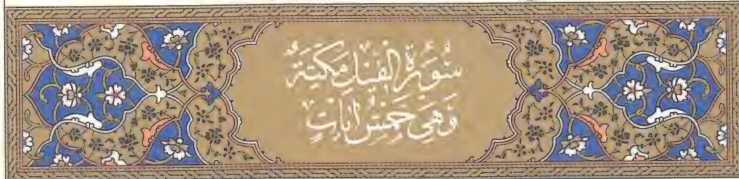 سُورَةُ الْفِيلِ مَكِّيَّةٌ
وَهِيَ خَمْسُ آيَاتٍ